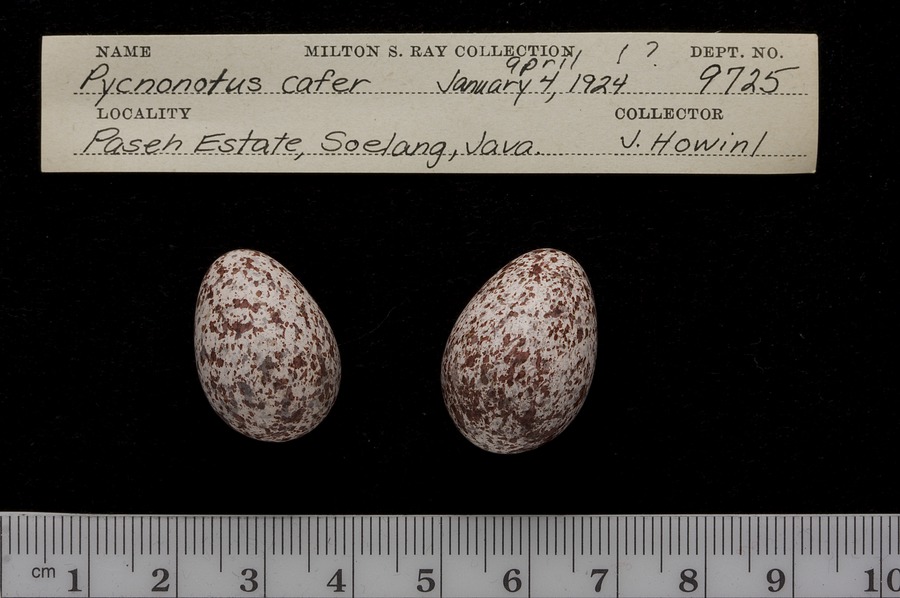 NAME MILTON S. RAY COLLECTION DEPT. NO.
april 1 ?
Pycnonotus cafer January 4, 1924 9725
LOCALITY COLLECTOR
Paseh Estate, Soelang, Java. J. Howinl
cm 1 2 3 4 5 6 7 8 9 10